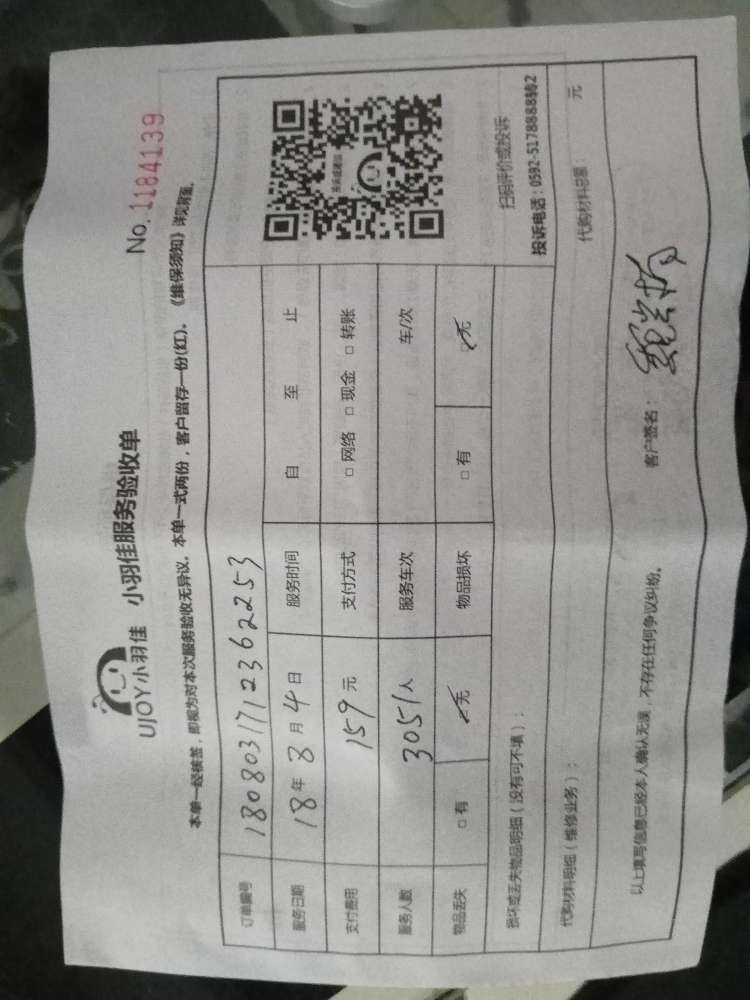 UJOY小羽佳 小羽佳服务验收单 No.1184139
本单一经核签，即视为对本次服务验收无异议。本单一式两份，客户留存一份(红)。《维保须知》详见背面。
订单编号 180803171236 2253
服务日期 18年8月4日 服务时间 自 至 止
支付费用 159元 支付方式 □ 网络 □ 现金 □ 转账
服务人数 3051人 服务车次 车/次
物品丢失 □ 有 □ 无 物品损坏 □ 有 □ 无
扫码评价或投诉
投诉电话：0592-5178888转2
损坏或丢失物品明细（没有可不填）：
代购材料明细（维修业务）： 代购材料总额： 元
以上填写信息已经本人确认无误，不存在任何争议纠纷。 客户签名：